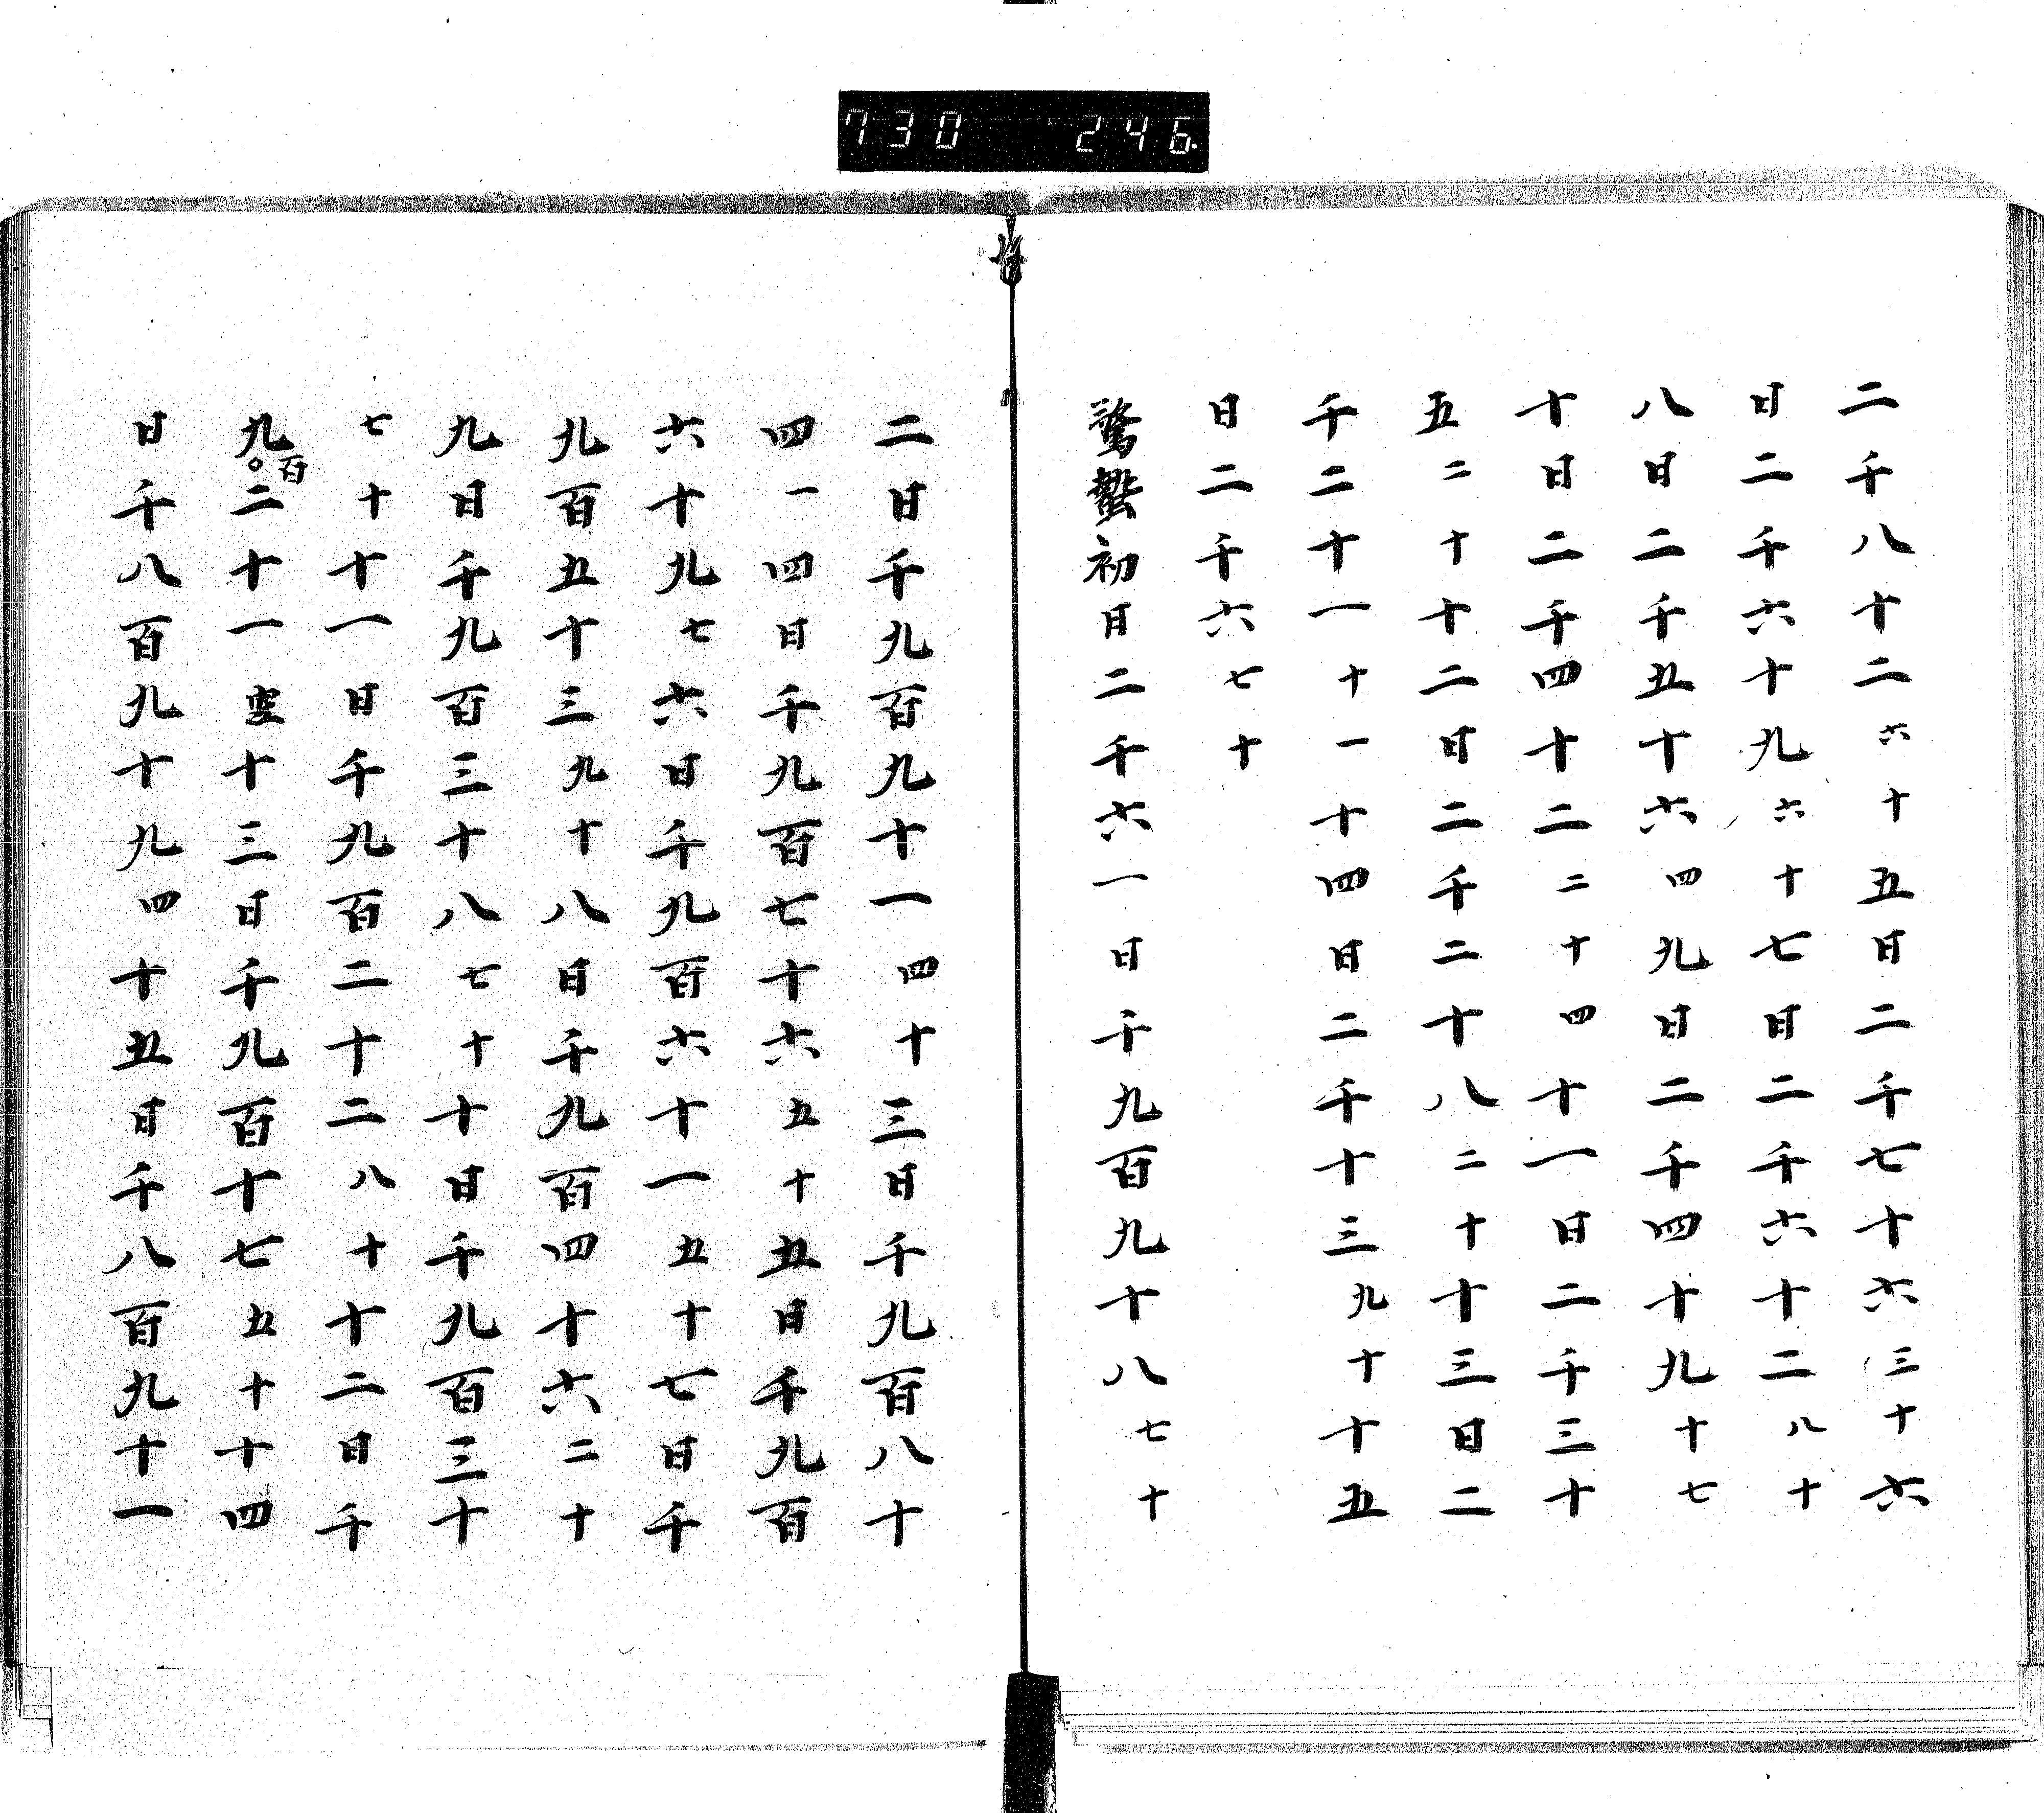 730 246.
二千八十二六十五日二千七十六三十六
日二千六十九六十七日二千六十二八十
八日二千五十六四九日二千四十九十七
十日二千四十二二十四十一日二千三十
五二十十二日二千二十八二十十三日二
千二十一十一十四日二千十三九十十五
日二千六七十
驚蟄初日二千六一日千九百九十八七十
二日千九百九十一四十三日千九百八十
四一四日千九百七十六五十五日千九百
六十九七六日千九百六十一五十七日千
九百五十三九十八日千九百四十六二十
九日千九百三十八七十十日千九百三十
七十十一日千九百二十二八十十二日千
九百二十一空十三日千九百十七五十十四
日千八百九十九四十五日千八百九十一